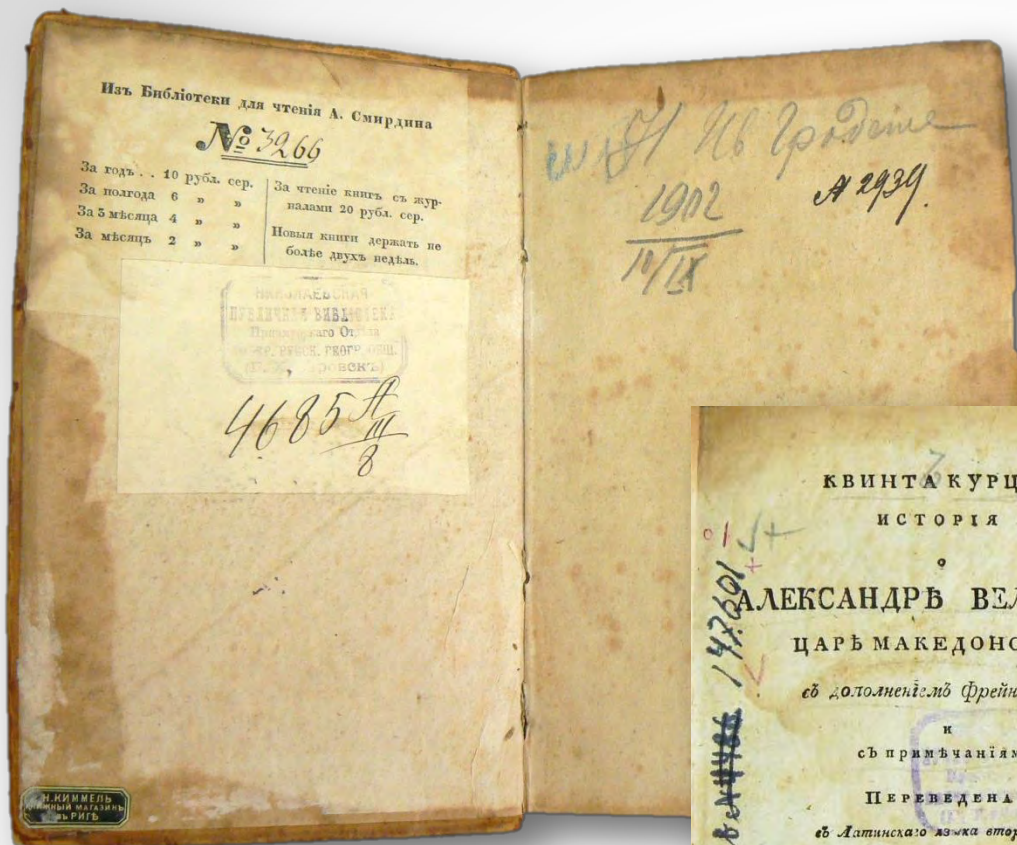 Изъ Библіотеки для чтенія А. Смирдина
№ 3266
За годъ . . 10 рубл. сер.
За полгода 6 » »
За 3 мѣсяца 4 » »
За мѣсяцъ 2 » »
За чтеніе книгъ съ жур-
налами 20 рубл. сер.
Новыя книги держать не
болѣе двухъ недѣль.
НИКОЛАЕВСКАЯ
ПУБЛИЧНАЯ БИБЛІОТЕКА
4685 А
III
8
Н. КИММЕЛЬ
КНИЖНЫЙ МАГАЗИНЪ
въ РИГѢ
1902
10/IX
А 2939.
КВИНТА КУРЦ
ИСТОРІЯ
о
АЛЕКСАНДРѢ ВЕЛ
ЦАРѢ МАКЕДОНС
съ дополненіемъ Фрейн
и
съ примѣчаніям
ПЕРЕВЕДЕНА
съ Латинскаго языка втор